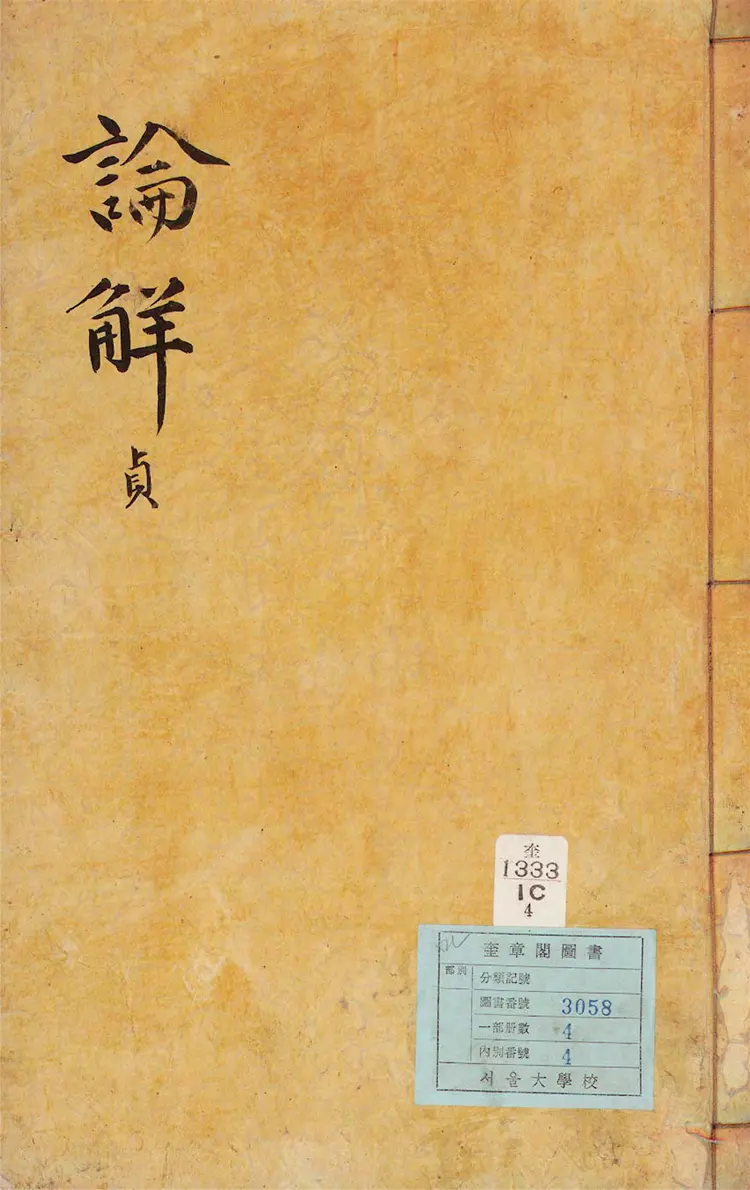 論解
貞
奎
1333
1C
4
奎章閣圖書
部別
分類記號
圖書番號 3058
一部冊數 4
內別番號 4
서울大學校